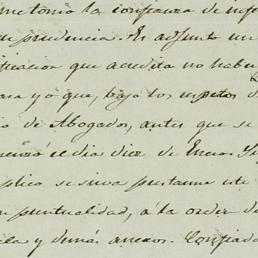 me tomo la confianza de inf
prudencia. Es adjunto un
que acredita no habe
para yo que, bajo los
io de Abogados, antes que se
el dia diez de Enero
plico se sirva prestarme este
puntualidad, á la orden de
y demás anexos. Confiado